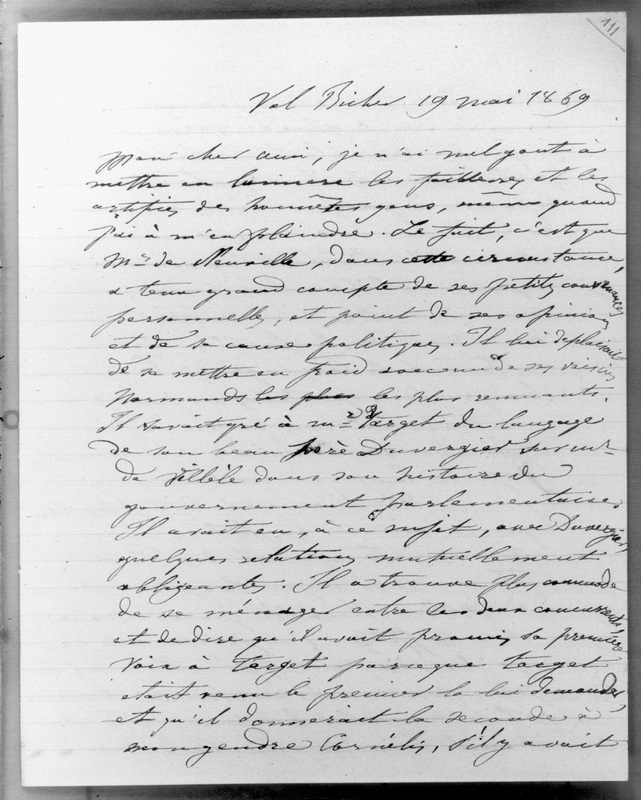 111
Val Richer 19 mai 1869
Mon cher ami, je n'ai nul gout à
mettre en lumiere les faiblesses et les
artifices des honnêtes gens, même quand
j'ai à m'en plaindre. Le fait, c'est que
Mr de Neuville, dans cette circonstance,
a tenu grand compte de ses petites convenances
personnelles, et point de ses opinions
et de sa cause politiques. Il lui deplaisait
de se mettre en froid avec un de ses voisins
normands les plus les plus remuants.
Il savait gré à Mr Target du langage
de son beau père Duvergier sur Mr
de Villèle dans son histoire du
gouvernement parlementaire.
Il avait eu, à ce sujet, avec Duvergier,
quelques relations mutuellement
obligeantes. Il a trouvé plus commode
de se ménager entre les deux concurrents,
et de dire qu'il avait promis sa première
voix à Target parceque Target
était venu le premier la lui demander,
et qu'il donnerait la seconde à
mon gendre Cornélis, s'il y avait